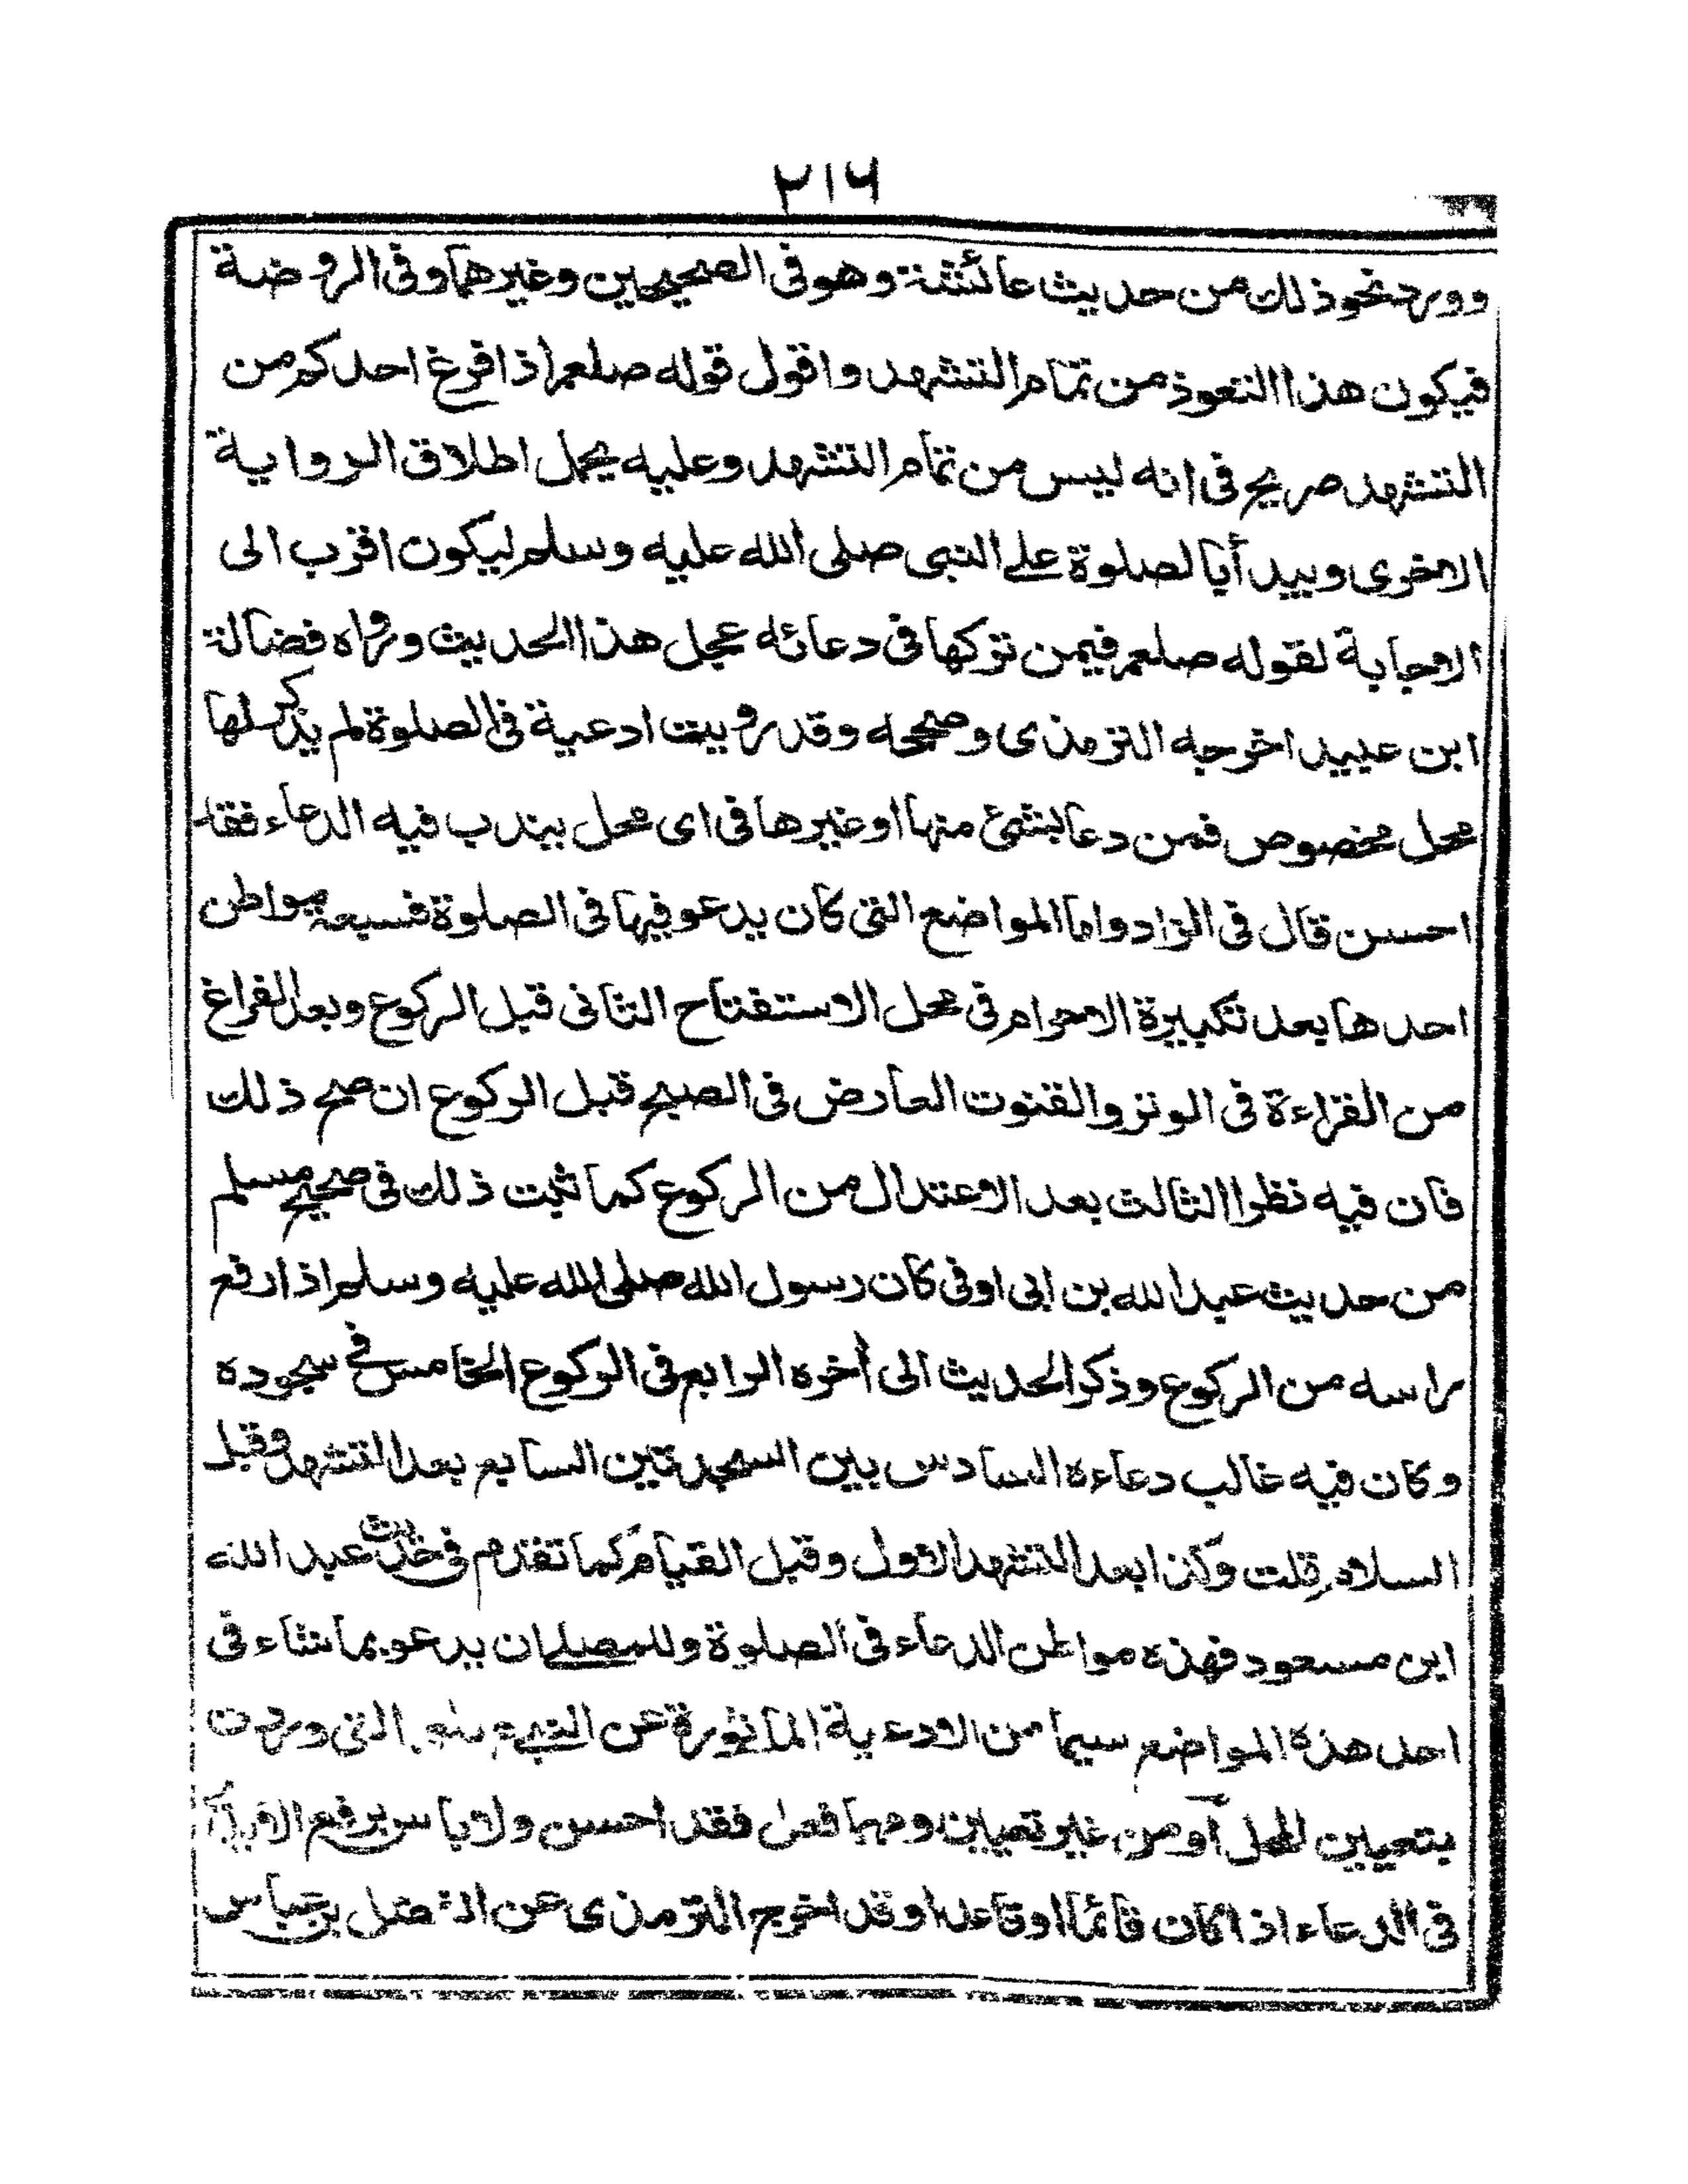 ٢١٦
وورد نحو ذلك من حديث عائشة وهو فى الصحيحين وغيرهما وفى الروضة
فيكون هذا التعوذ من تمام التشهد واقول قوله صلعم اذا فرغ احدكم من
التشهد صريح فى انه ليس من تمام التشهد وعليه يحمل اطلاق الرواية
الاخرى ويبدأ بالصلوة على النبى صلى الله عليه وسلم ليكون اقرب الى
الاجابة لقوله صلعم فيمن تركها فى دعائه عجل هذا الحديث ورواه فضالة
ابن عبيد اخرجه الترمذى وصححه وقد رويت ادعية فى الصلوة لم يذكر لها
محل مخصوص فمن دعا بشئ منها او غيرها فى اى محل يندب فيه الدعاء فقد
احسن قال فى الزاد واما المواضع التى كان يدعو فيها فى الصلوة فسبعة مواطن
احدها بعد تكبيرة الاحرام فى محل الاستفتاح الثانى قبل الركوع وبعد الفراغ
من القراءة فى الوتر والقنوت العارض فى الصبح قبل الركوع ان صح ذلك
فان فيه نظرا الثالث بعد الاعتدال من الركوع كما ثبت ذلك فى صحيح مسلم
من حديث عبد الله بن ابى اوفى كان رسول الله صلى الله عليه وسلم اذا رفع
راسه من الركوع وذكر الحديث الى أخره الرابع فى الركوع الخامس فى سجوده
وكان فيه غالب دعاءه السادس بين السجدتين السابع بعد التشهد وقبل
السلام قلت وكذا بعد التشهد الاول وقبل القيام كما تقدم فى حديث عبد الله
ابن مسعود فهذه مواطن الدعاء فى الصلوة وللمصلى ان يدعو بما شاء فى
احد هذه المواضع سيما من الادعية المأثورة عن النبى صلعم التى وردت
بتعيين المحل أو من غير تعيين ومهما فعل فقد احسن ولا باس برفع الايدى
فى الدعاء اذا كان قائما او قاعدا وقد اخرج الترمذى عن الفضل بن عباس